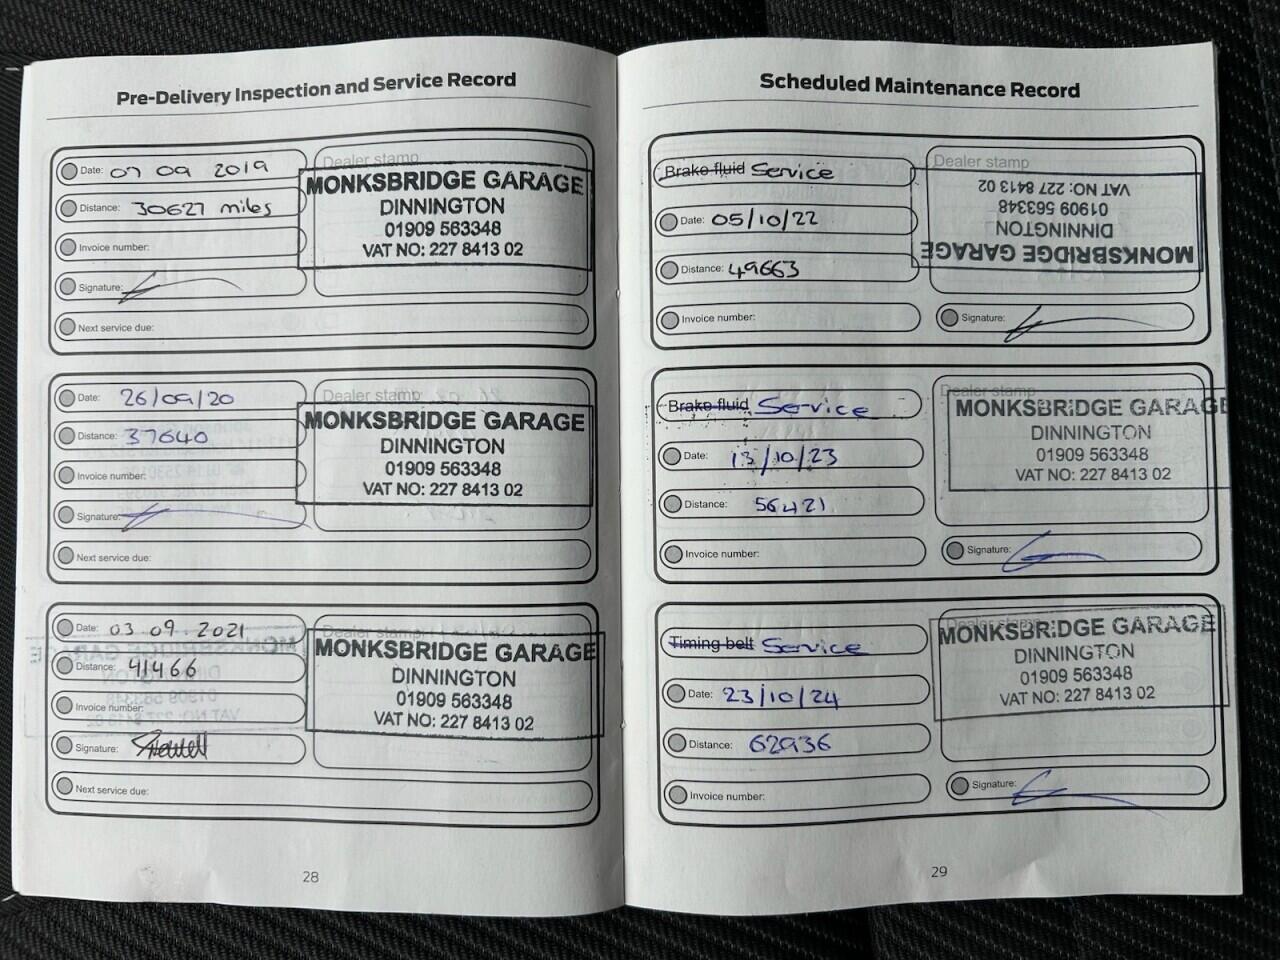 Pre-Delivery Inspection and Service Record
Date: 07 09 2019
Distance: 30627 miles
Invoice number:
Signature:
Next service due:
Dealer stamp
MONKSBRIDGE GARAGE
DINNINGTON
01909 563348
VAT NO: 227 8413 02
Date: 26/09/20
Distance: 37640
Invoice number:
Signature:
Next service due:
Dealer stamp
MONKSBRIDGE GARAGE
DINNINGTON
01909 563348
VAT NO: 227 8413 02
Date: 03.09.2021
Distance: 41466
Invoice number:
Signature:
Next service due:
Dealer stamp
MONKSBRIDGE GARAGE
DINNINGTON
01909 563348
VAT NO: 227 8413 02
28
Scheduled Maintenance Record
Brake fluid Service
Date: 05/10/22
Distance: 49663
Invoice number:
Dealer stamp
MONKSBRIDGE GARAGE
DINNINGTON
01909 563348
VAT NO: 227 8413 02
Signature:
Brake fluid Service
Date: 13/10/23
Distance: 56421
Invoice number:
Dealer stamp
MONKSBRIDGE GARAGE
DINNINGTON
01909 563348
VAT NO: 227 8413 02
Signature:
Timing belt Service
Date: 23/10/24
Distance: 62936
Invoice number:
Dealer stamp
MONKSBRIDGE GARAGE
DINNINGTON
01909 563348
VAT NO: 227 8413 02
Signature:
29